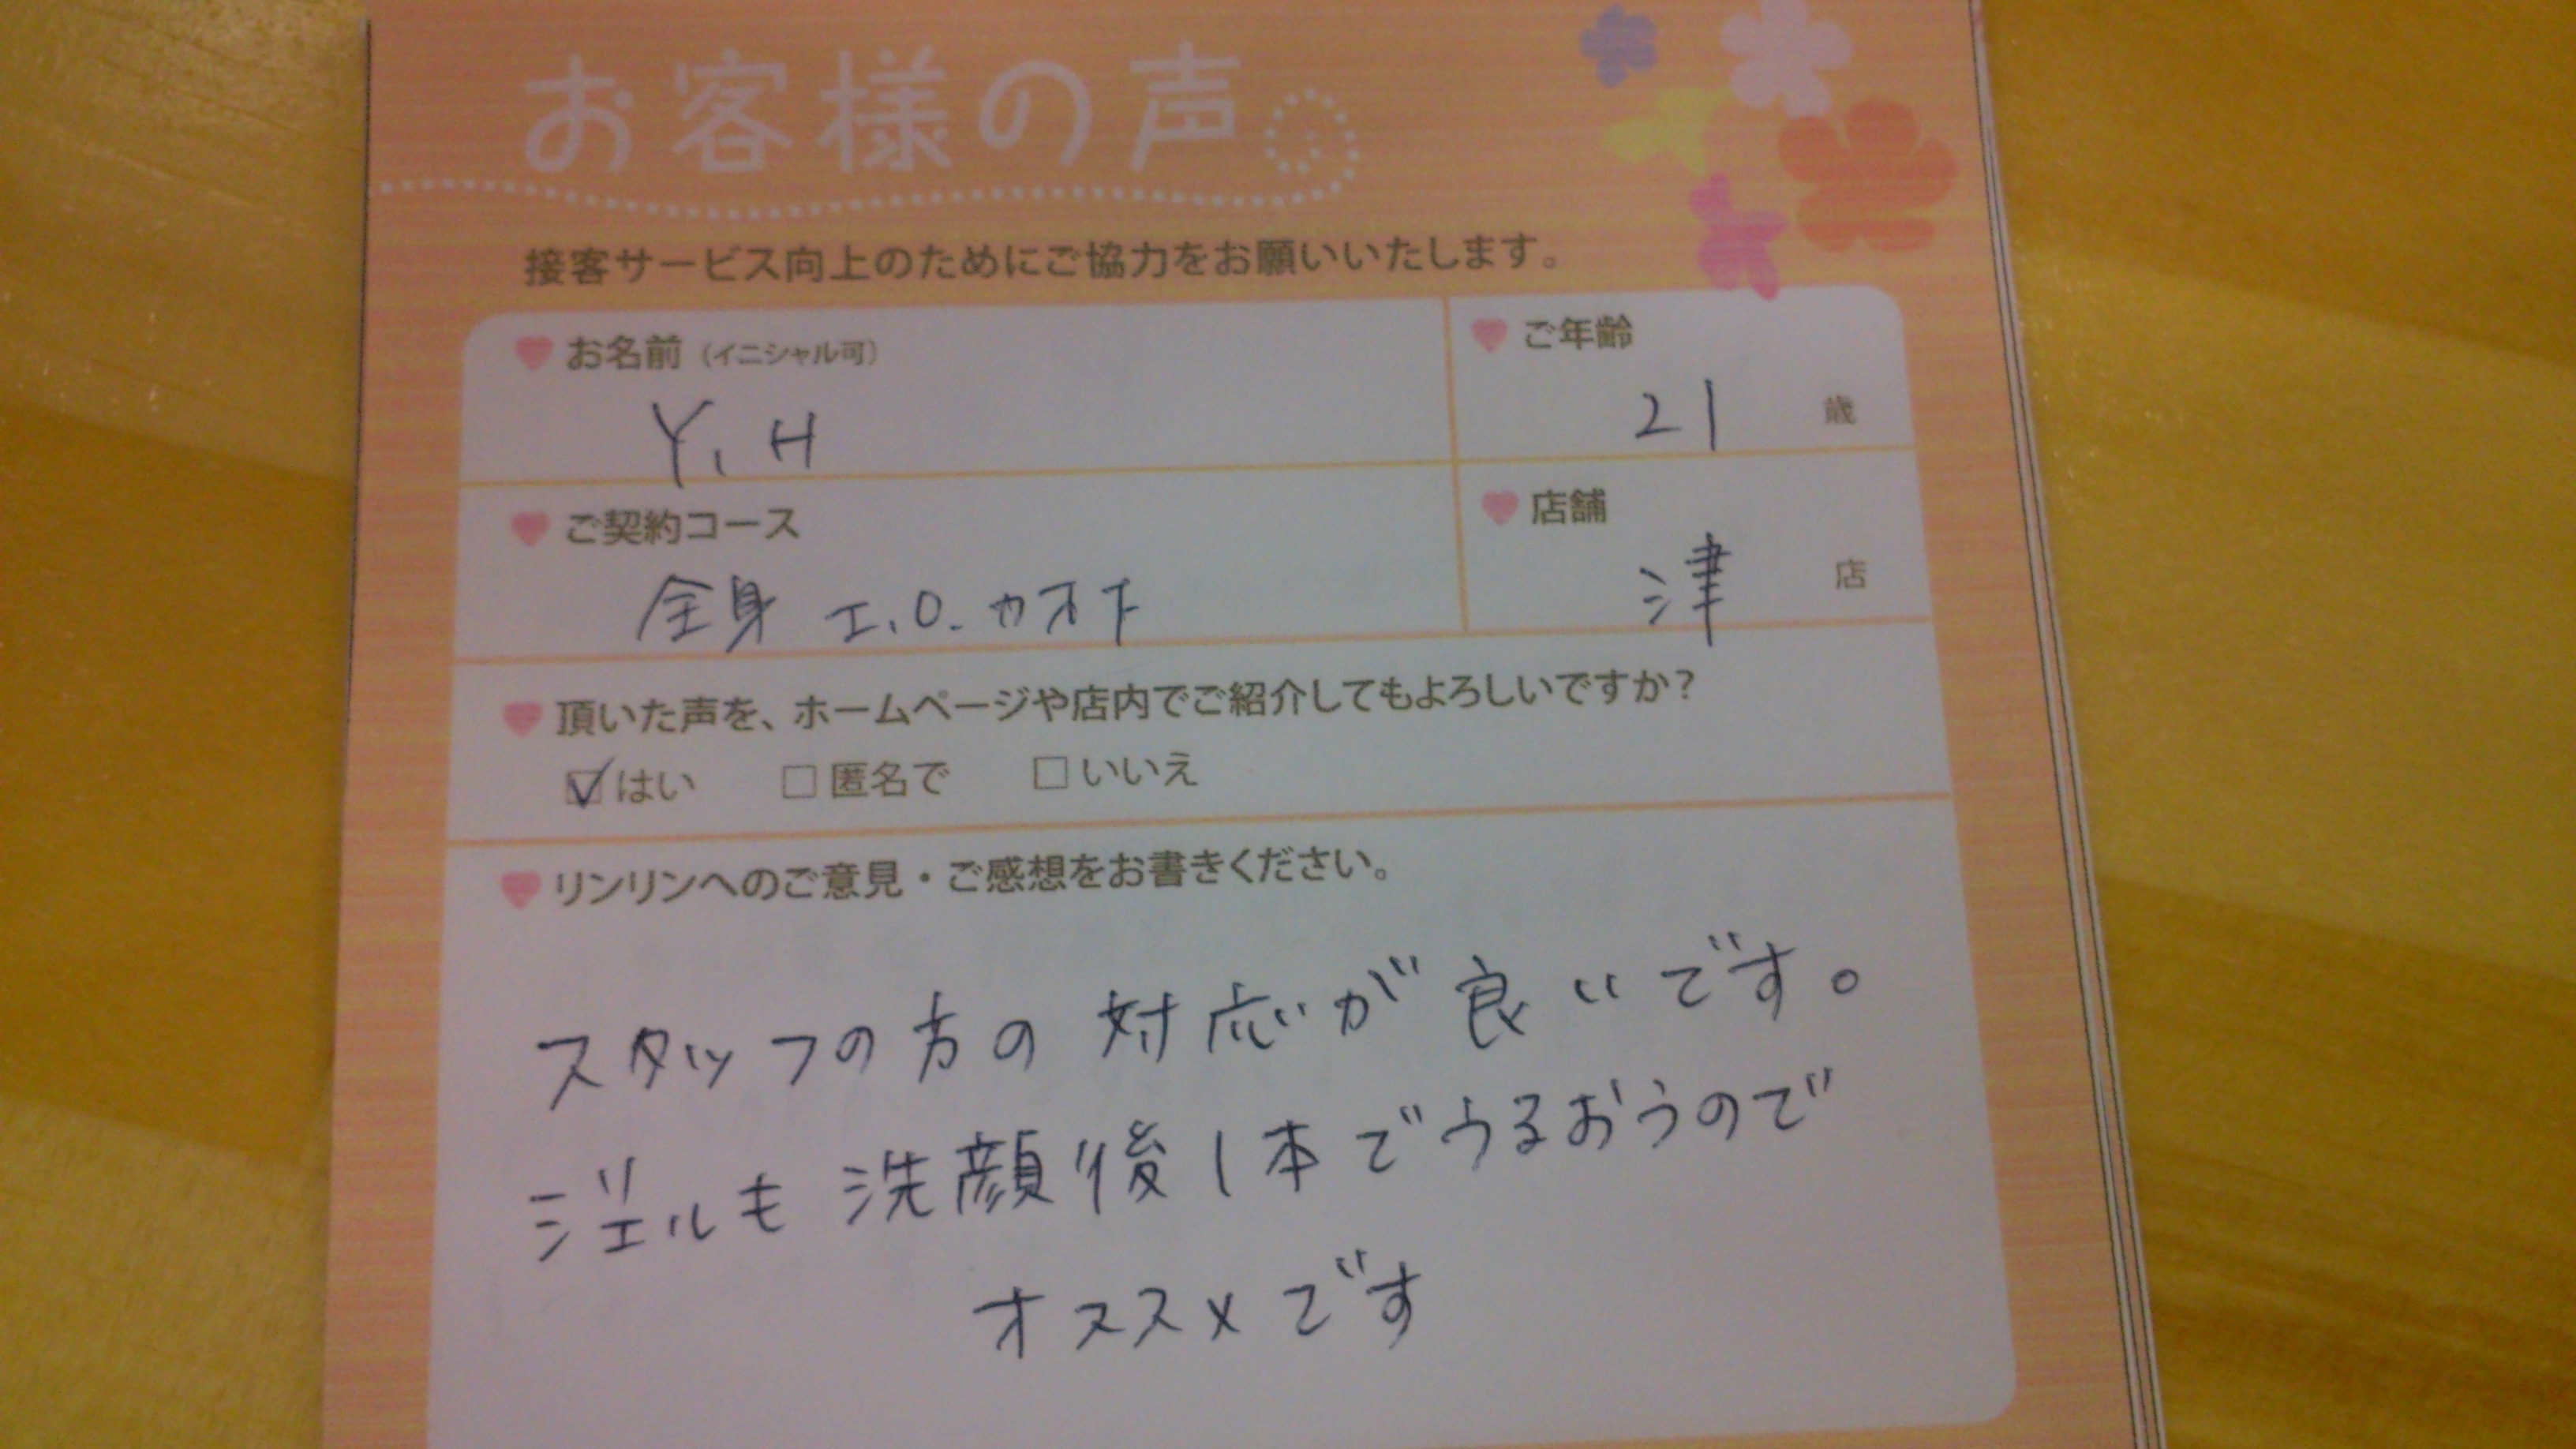 お客様の声
接客サービス向上のためにご協力をお願いいたします。
お名前(イニシャル可)
Y, H
ご年齢
21 歳
ご契約コース
全身 I, O. カオ
店舗
津 店
頂いた声を、ホームページや店内でご紹介してもよろしいですか?
はい 匿名で いいえ
リンリンへのご意見・ご感想をお書きください。
スタッフの方の対応が良いです。
ジェルも洗顔後1本でうるおうので
オススメです